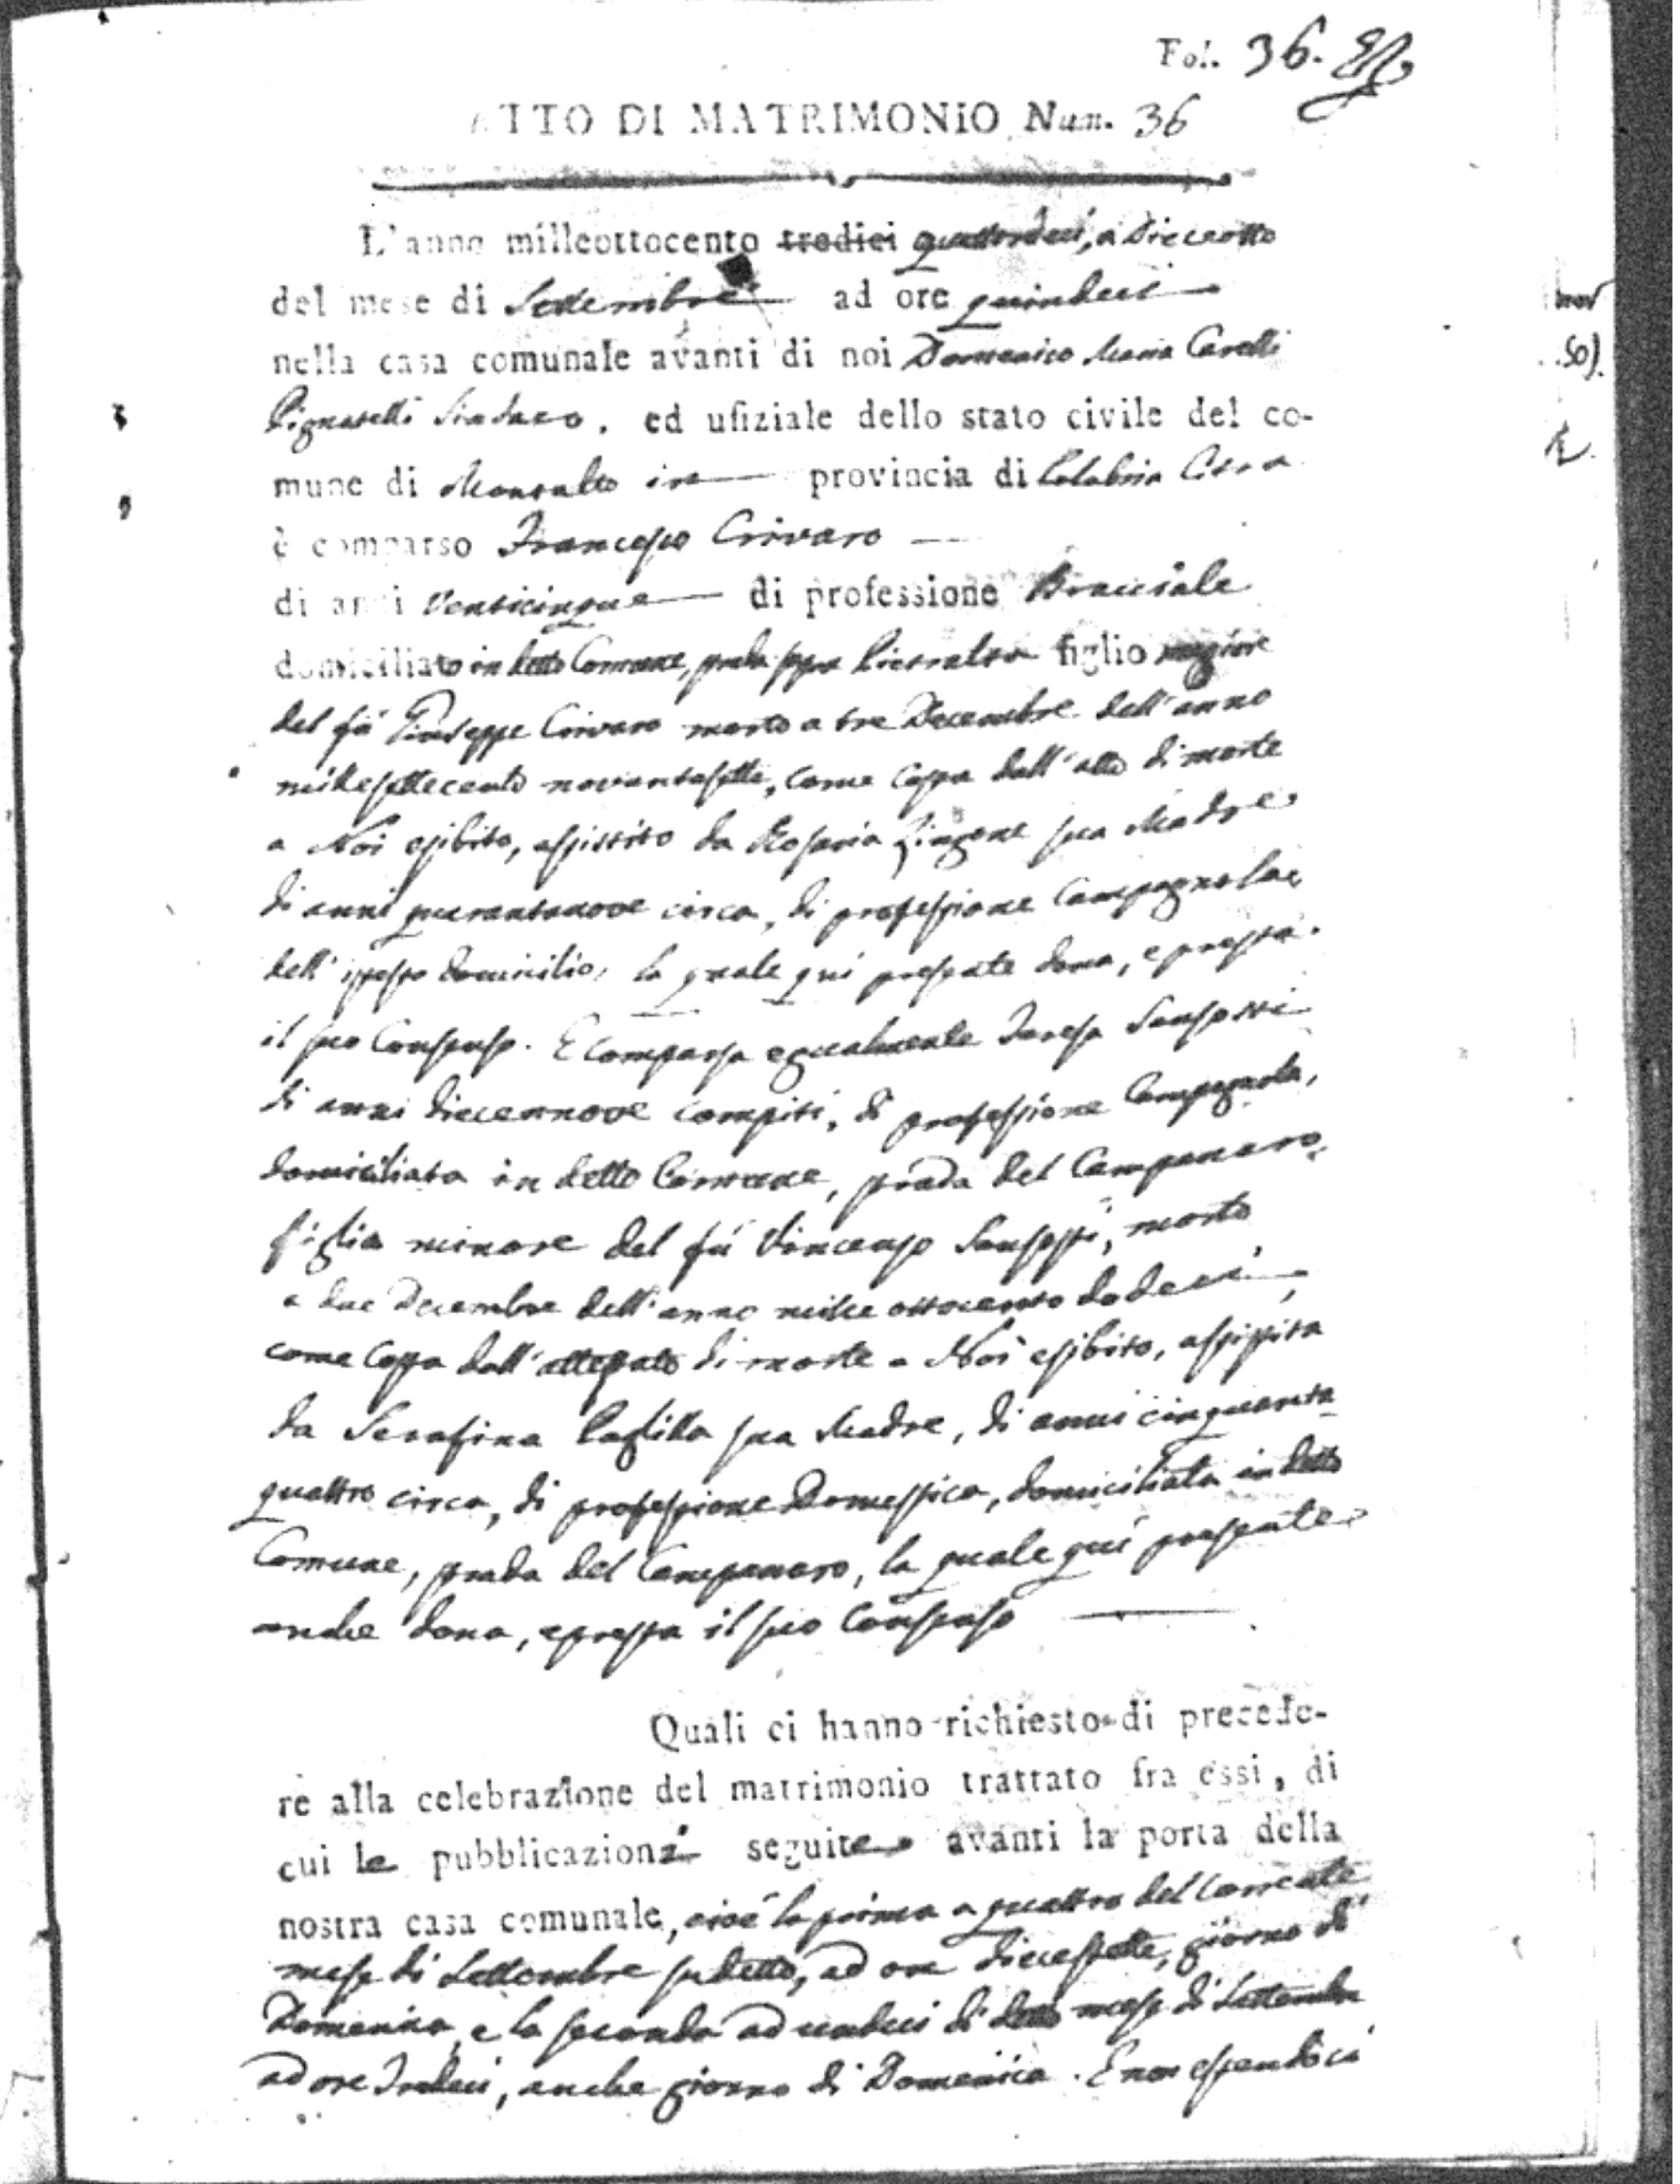 Fol. 36.
ATTO DI MATRIMONIO Num. 36
L'anno milleottocento tredici quattordeci, a Dieceotto
del mese di Settembre ad ore quindeci
nella casa comunale avanti di noi Domenico Maria Carelli
Pignatelli Sindaco, ed ufiziale dello stato civile del co-
mune di Montalto in provincia di Calabria Citra
è comparso Francesco Crivaro
di anni venticinque di professione Bracciale
domiciliato in detto Comune, strada sopra Pietralta figlio magiore
del fù Giuseppe Crivaro morto a tre Decembre dell'anno
millesettecento novantasette, come costa dall'atto di morte
a Noi esibito, assistito da Rosaria Zingone sua Madre
di anni quarantanove circa, di professione Campagnola
dell'istesso domicilio, la quale quì presente dona, e presta
il suo Consenso. E comparsa egualmente Teresa Sansosti
di anni diecennove compiti, di professione Campagnola,
domiciliata in detto Comune, strada del Campanaro,
figlia minore del fù Vincenzo Sansosti, morto
a due Decembre dell'anno mille ottocento dodeci,
come costa dall'attestato di morte a Noi esibito, assistita
da Serafina sua Madre, di anni cinquanta
quattro circa, di professione Domestica, domiciliata in detto
Comune, strada del Campanaro, la quale quì presente
anche dona, e presta il suo Consenso
Quali ci hanno richiesto di precede-
re alla celebrazione del matrimonio trattato fra essi, di
cui le pubblicazioni seguite avanti la porta della
nostra casa comunale, cioè la prima a quattro del corrente
mese di Settembre sudetto, ad ore diecessette, giorno di
Domenica, e la seconda ad undeci di detto mese di Settembre
ad ore Tredeci, anche giorno di Domenica. E non essendoci